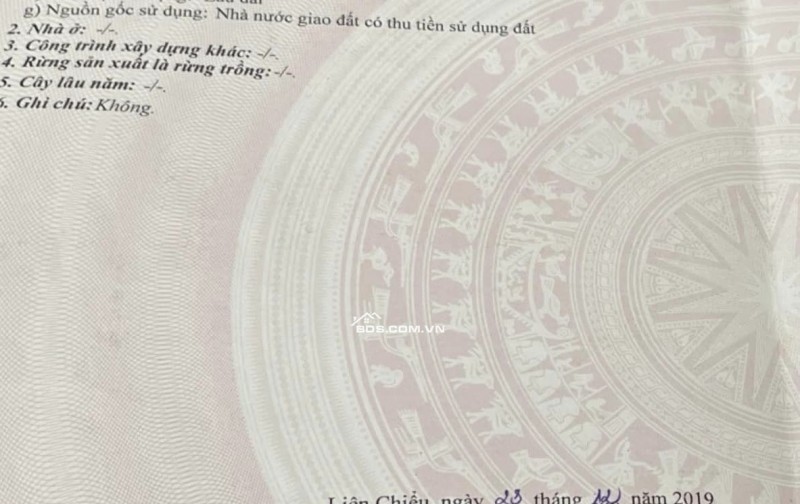 g) Nguồn gốc sử dụng: Nhà nước giao đất có thu tiền sử dụng đất
2. Nhà ở: -/-.
3. Công trình xây dựng khác: -/-.
4. Rừng sản xuất là rừng trồng: -/-.
5. Cây lâu năm: -/-.
6. Ghi chú: Không.
BDS.COM.VN
Liên Chiểu, ngày 23 tháng 12 năm 2019